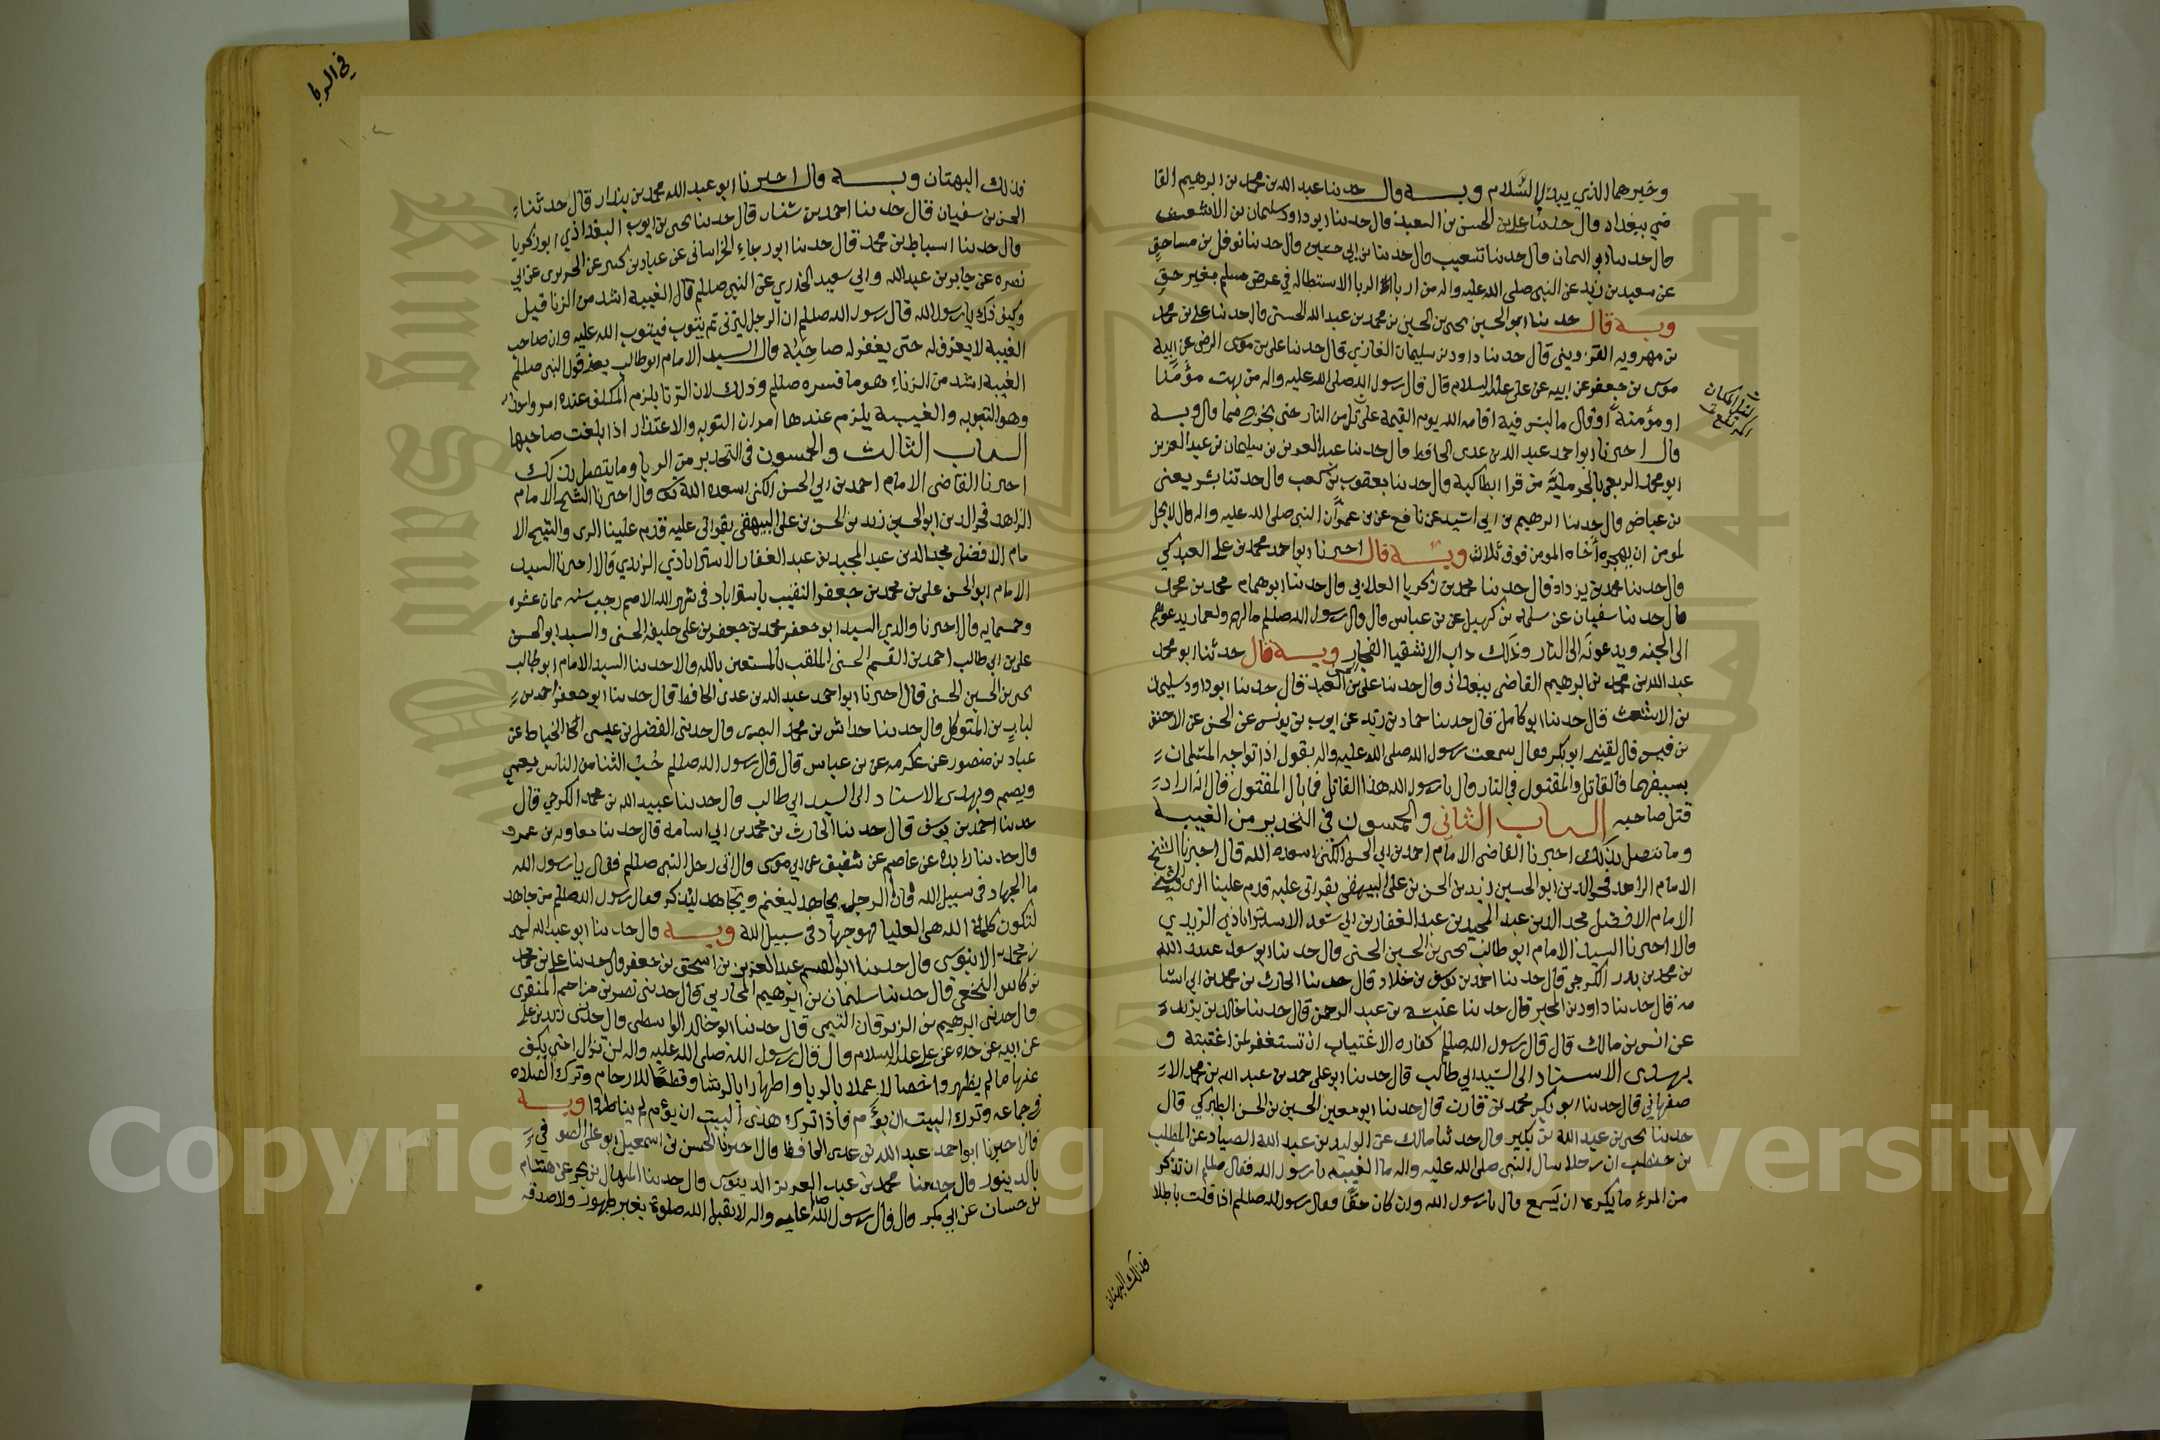 وخيرهما الذي يبدا بالسلام وبه قال حدثنا عبد الله بن محمد بن ابرهيم القا
ضي ببغداد قال حدثنا علي بن الحسن بن العبد قال حدثنا ابو داود سليمان بن الاشعث
قال حدثنا ابو اليمان قال حدثنا شعيب قال حدثنا بن ابي حسين قال حدثنا نوفل بن مساحق
عن سعيد بن زيد عن النبي صلى الله عليه واله من اربا الربا الاستطاله في عرض مسلم بغير حق
وبه قال حدثنا ابو الحسين يحيى بن الحسين بن محمد بن عبد الله الحسني قال حدثنا علي بن محمد
بن مهرويه القزويني قال حدثنا داود بن سليمان الغازي قال حدثنا علي بن موسى الرضى عن ابيه
موسى بن جعفر عن ابيه عن علي عليه السلام قال قال رسول الله صلى الله عليه واله من بهت مؤمنا
او مؤمنة او قال ما ليس فيه اقامه الله يوم القيمة على تل من النار حتى يخرج مما قال وبه
قال اخبرنا ابو احمد عبد الله بن عدي الحافظ قال حدثنا عبد العزيز بن سليمان بن عبد العزيز
ابو محمد الربعي بالحرمليه من قرا انطاكية قال حدثنا يعقوب بن كعب قال حدثنا بشر يعني
بن عياض قال حدثنا ابرهيم بن ابي اسيد عن نافع عن بن عمر ان النبي صلى الله عليه واله قال لا يحل
لمومن ان يهجر اخاه المومن فوق ثلاث وبه قال اخبرنا ابو احمد محمد بن علي العبدكي
قال حدثنا محمد بن يزداد قال حدثنا محمد بن زكريا الغلابي قال حدثنا ابو همام محمد بن محمد
قال حدثنا سفيان عن سلمه بن كهيل عن بن عباس قال قال رسول الله صللم مالهم ولعمار يدعوهم
الى الجنه ويدعونه الى النار وذلك داب الاشقيا الفجار وبه قال حدثنا ابو محمد
عبد الله بن محمد بن ابرهيم القاضي ببغداد قال حدثنا علي بن العبد قال حدثنا ابو داود سليمان
بن الاشعث قال حدثنا ابو كامل قال حدثنا حماد بن زيد عن ايوب بن يونس عن الحسن عن الاحنف
بن قيس قال لقيني ابو بكر فقال سمعت رسول الله صلى الله عليه واله يقول اذا تواجه المسلمان
بسيفهما فالقاتل والمقتول في النار قال يا رسول الله هذا القاتل فما بال المقتول قال انه اراد
قتل صاحبه الباب الثاني والخمسون في التحذير من الغيبة
وما يتصل بذلك اخبرنا القاضي الامام احمد بن ابي الحسن الكني اسعده الله قال اخبرنا الشيخ
الامام الزاهد فخر الدين ابو الحسين زيد بن الحسن بن علي البيهقي بقراتي عليه قدم علينا الري والشيخ
الامام الافضل مجد الدين عبد المجيد بن عبد الغفار بن ابي سعد الاستراباذي الزيدي
قالا اخبرنا السيد الامام ابو طالب يحيى بن الحسين الحسني قال حدثنا ابو سعد عبيد الله
بن محمد بن بدر الكرجي قال حدثنا احمد بن يوسف بن خلاد قال حدثنا الحارث بن محمد بن ابي اسا
مه قال حدثنا داود بن المحبر قال حدثنا عنبسه بن عبد الرحمن قال حدثنا خالد بن يزيد
عن انس بن مالك قال قال رسول الله صللم كفاره الاغتياب ان تستغفر لمن اغتبته و
بهذا الاسناد الى السيد ابي طالب قال حدثنا ابو علي حمد بن عبد الله بن محمد الا
صفهاني قال حدثنا ابو بكر محمد بن قارن قال حدثنا ابو معين الحسين بن الحسن الطبركي قال
حدثنا يحيى بن عبد الله بن بكير قال حدثنا مالك عن الوليد بن عبد الله الصياد عن المطلب
بن حنطب ان رجلا سال النبي صلى الله عليه واله ما الغيبه يا رسول الله فقال صللم ان تذكر
من المرء ما يكره ان يسمع قال يا رسول الله وان كان حقا فقال رسول الله صللم اذا قلت باطلا
فذلك البهتان
في الربا
فذلك البهتان وبه قال اخبرنا ابو عبد الله محمد بن بندار قال حدثنا
الحسن بن سفيان قال حدثنا احمد بن شنار قال حدثنا يحيى بن ايوب البغداذي ابو زكريا
قال حدثنا اسباط بن محمد قال حدثنا ابو رجاء الخراساني عن عباد بن كثير عن الجريري عن ابي
نصره عن جابر بن عبد الله وابي سعيد الخدري عن النبي صللم قال الغيبة اشد من الزنا قيل
وكيف ذلك يا رسول الله قال رسول الله صللم ان الرجل ليزني ثم يتوب فيتوب الله عليه وان صاحب
الغيبة لا يغفر له حتى يغفر له صاحبه قال السيد الامام ابو طالب يعني قول النبي صللم
الغيبة اشد من الزناء هو ما فسره صللم وذلك لان الزنا يلزم المكلف عنده امر واحد
وهو التوبه والغيبة يلزم عندها امران التوبه والاعتذار اذا بلغت صاحبها
الباب الثالث والخمسون في التحذير من الربا وما يتصل بذلك
اخبرنا القاضي الامام احمد بن ابي الحسن الكني اسعده الله قال اخبرنا الشيخ الامام
الزاهد فخر الدين ابو الحسين زيد بن الحسن بن علي البيهقي بقراتي عليه قدم علينا الري والشيخ الا
مام الافضل مجد الدين عبد المجيد بن عبد الغفار الاستراباذي الزيدي قالا اخبرنا السيد
الامام ابو الحسن علي بن محمد بن جعفر النقيب باستراباد في شهر الله الاصم رجب سنه ثمان عشره
وخمسمايه قال اخبرنا والدي السيد ابو جعفر محمد بن جعفر بن علي خليفه الحسني والسيد ابو الحسن
علي بن ابي طالب احمد بن القسم الحسني الملقب بالمستعين بالله قالا حدثنا السيد الامام ابو طالب
يحيى بن الحسين الحسني قال اخبرنا ابو احمد عبد الله بن عدي الحافظ قال حدثنا ابو جعفر احمد بن
لباب بن المتوكل قال حدثنا خداش بن محمد البصري قال حدثني الفضل بن عيسى الخياط عن
عباد بن منصور عن عكرمه عن بن عباس قال قال رسول الله صللم حب الثنا من الناس يعمي
ويصم وبهذا الاسناد الى السيد ابي طالب قال حدثنا عبيد الله بن محمد الكرجي قال
حدثنا احمد بن يوسف قال حدثنا الحارث بن محمد بن ابي اسامة قال حدثنا معاويه بن عمرو
قال حدثنا زايده عن عاصم عن شقيق عن ابي موسى قال اتى رجل النبي صللم فقال يا رسول الله
ما الجهاد في سبيل الله فان الرجل يجاهد ليغنم ويجاهد ليذكر فقال رسول الله صللم من جاهد
لتكون كلمة الله هي العليا فهو جهاد في سبيل الله وبه قال حدثنا ابو عبد الله احمد
بن محمد الابنوسي قال حدثنا ابو القسم عبد العزيز بن اسحق بن جعفر قال حدثنا علي بن محمد
بن كاس النخعي قال حدثنا سليمان بن ابرهيم المحاربي قال حدثني نصر بن مزاحم المنقري
قال حدثني ابرهيم بن الزبرقان التيمي قال حدثنا ابو خالد الواسطي قال حدثني زيد بن علي
عن ابيه عن جده عن علي عليه السلام قال قال رسول الله صلى الله عليه واله لن تزال امتي يكف
عنها ما لم يظهروا خصالا عملا بالربا واظهارا بالرشا وقطعا للارحام وترك الصلاه
في جماعه وترك البيت ان يؤم فاذا ترك هذا البيت ان يؤم لم يناظروا وبه
قال اخبرنا ابو احمد عبد الله بن عدي الحافظ قال اخبرنا الحسن بن اسمعيل ابو علي الصوفي
بالدينور قال حدثنا محمد بن عبد العزيز الدينوري قال حدثنا المنهال بن بحر عن هشام
بن حسان عن ابي بكر قال قال رسول الله صلى الله عليه واله لا يقبل الله صلوة بغير طهور ولا صدقه
Copyright © King Saud University
King Saud University